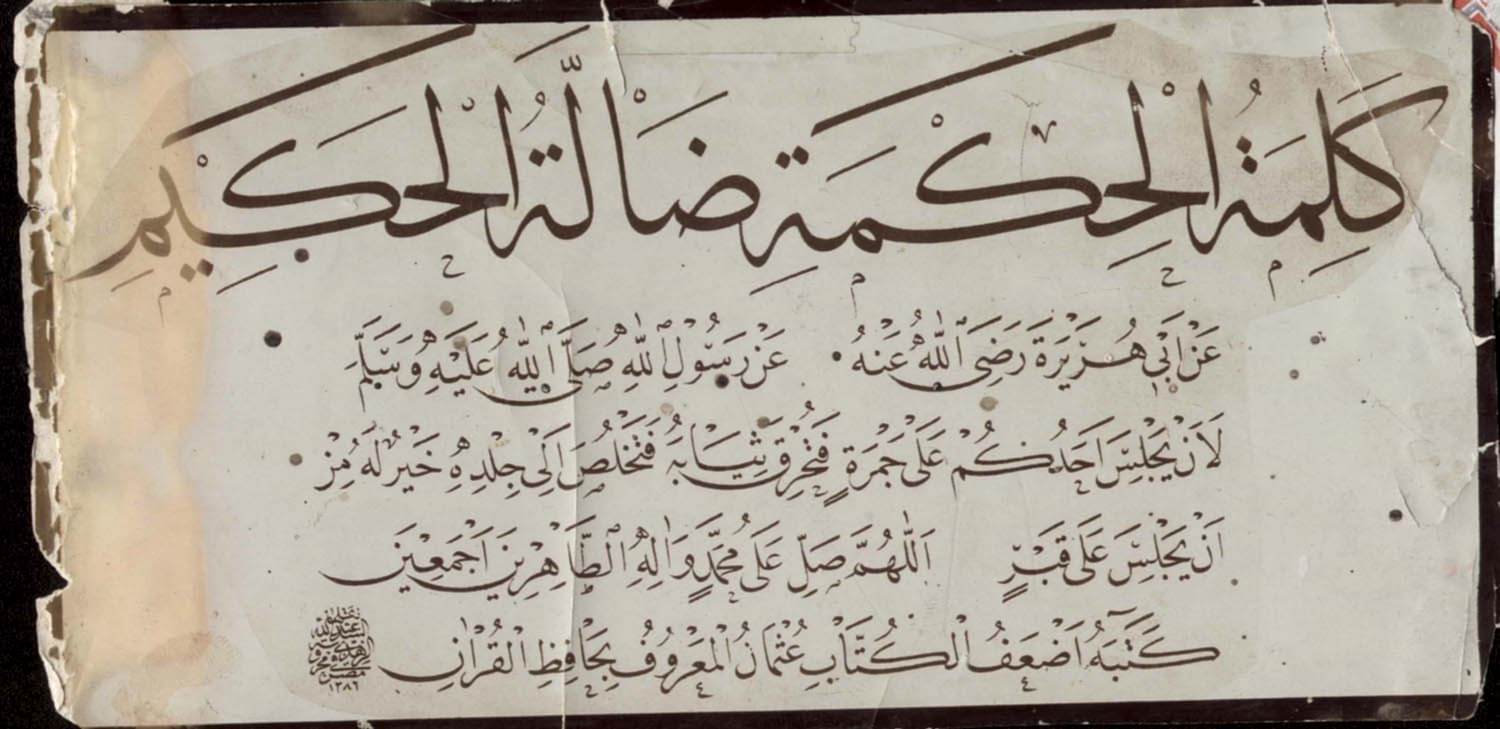 كَلِمَةُ الْحِكْمَةِ ضَالَّةُ الْحَكِيْمِ
عَنْ اَبِي هُرَيْرَةَ رَضِيَ اللّٰهُ عَنْهُ عَنْ رَسُولِ اللّٰهِ صَلَّى اللّٰهُ عَلَيْهِ وَسَلَّمَ
لَاَنْ يَجْلِسَ اَحَدُكُمْ عَلَى جَمْرَةٍ فَتُحْرِقَ ثِيَابَهُ فَتَخْلُصَ اِلَى جِلْدِهِ خَيْرٌ لَهُ مِنْ
اَنْ يَجْلِسَ عَلَى قَبْرٍ اَللّٰهُمَّ صَلِّ عَلَى مُحَمَّدٍ وَاٰلِهِ الطَّاهِرِينَ اَجْمَعِينَ
كَتَبَهُ اَضْعَفُ الْكُتَّابِ عُثْمَانُ الْمَعْرُوفُ بِحَافِظِ الْقُرْاٰنِ
١٣٨٢